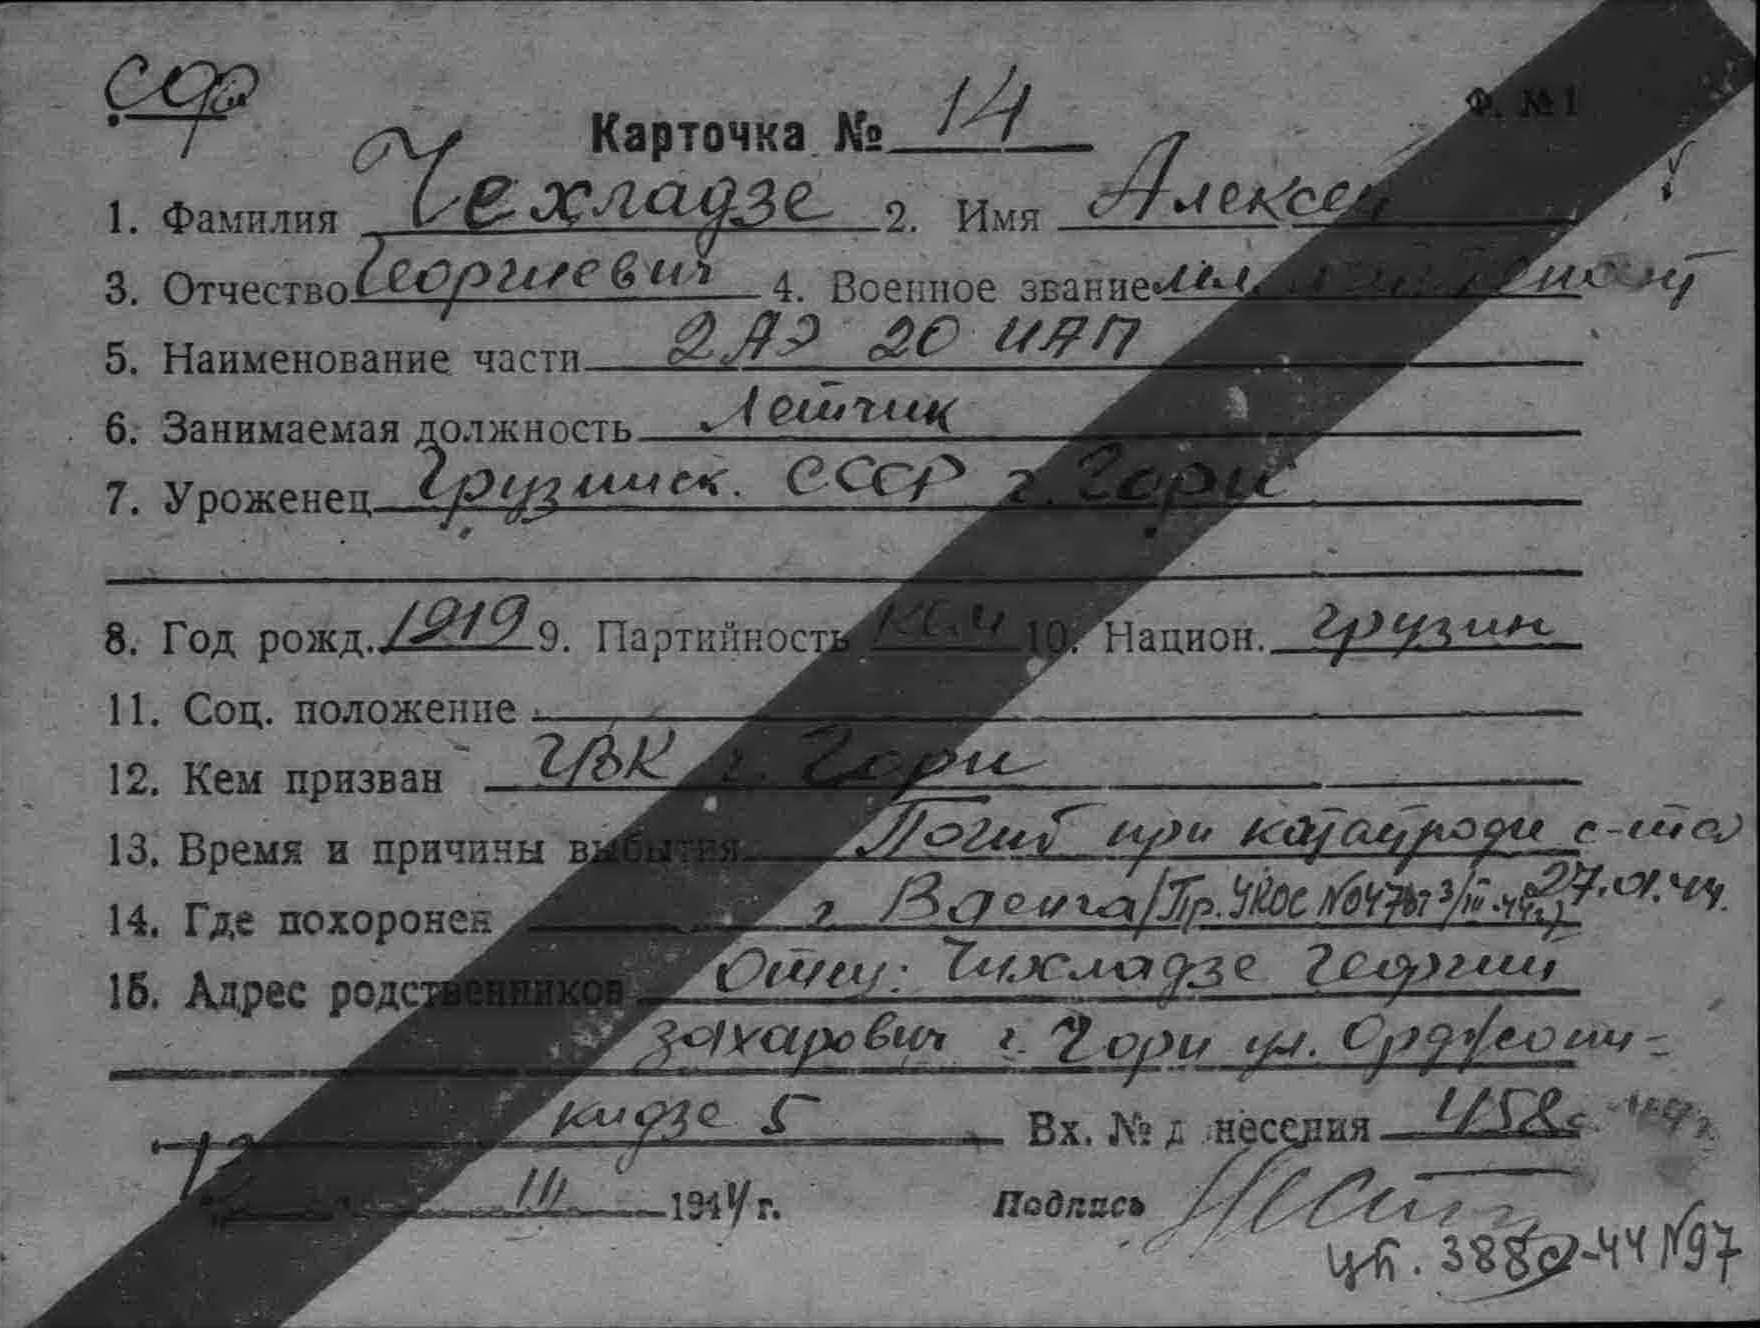 СФ
Ф. №1
Карточка № 14
1. Фамилия Чехладзе 2. Имя Алексей
3. Отчество Георгиевич 4. Военное звание мл. лейтенант
5. Наименование части 2 АЭ 20 ИАП
6. Занимаемая должность Летчик
7. Уроженец Грузинск. СССР г. Гори
8. Год рожд. 1919 9. Партийность КСМ 10. Национ. грузин
11. Соц. положение
12. Кем призван ГВК г. Гори
13. Время и причины выбытия Погиб при катастрофе с-та
27.01.44.
14. Где похоронен г. Ваенга (Пр. УКОС № 047 от 3/III-44г)
15. Адрес родственников Отец: Чихладзе Георгий
Захарович г. Гори ул. Орджони-
кидзе 5 Вх. № д несения 458с
III 1944 г. Подпись
388с-44 №97